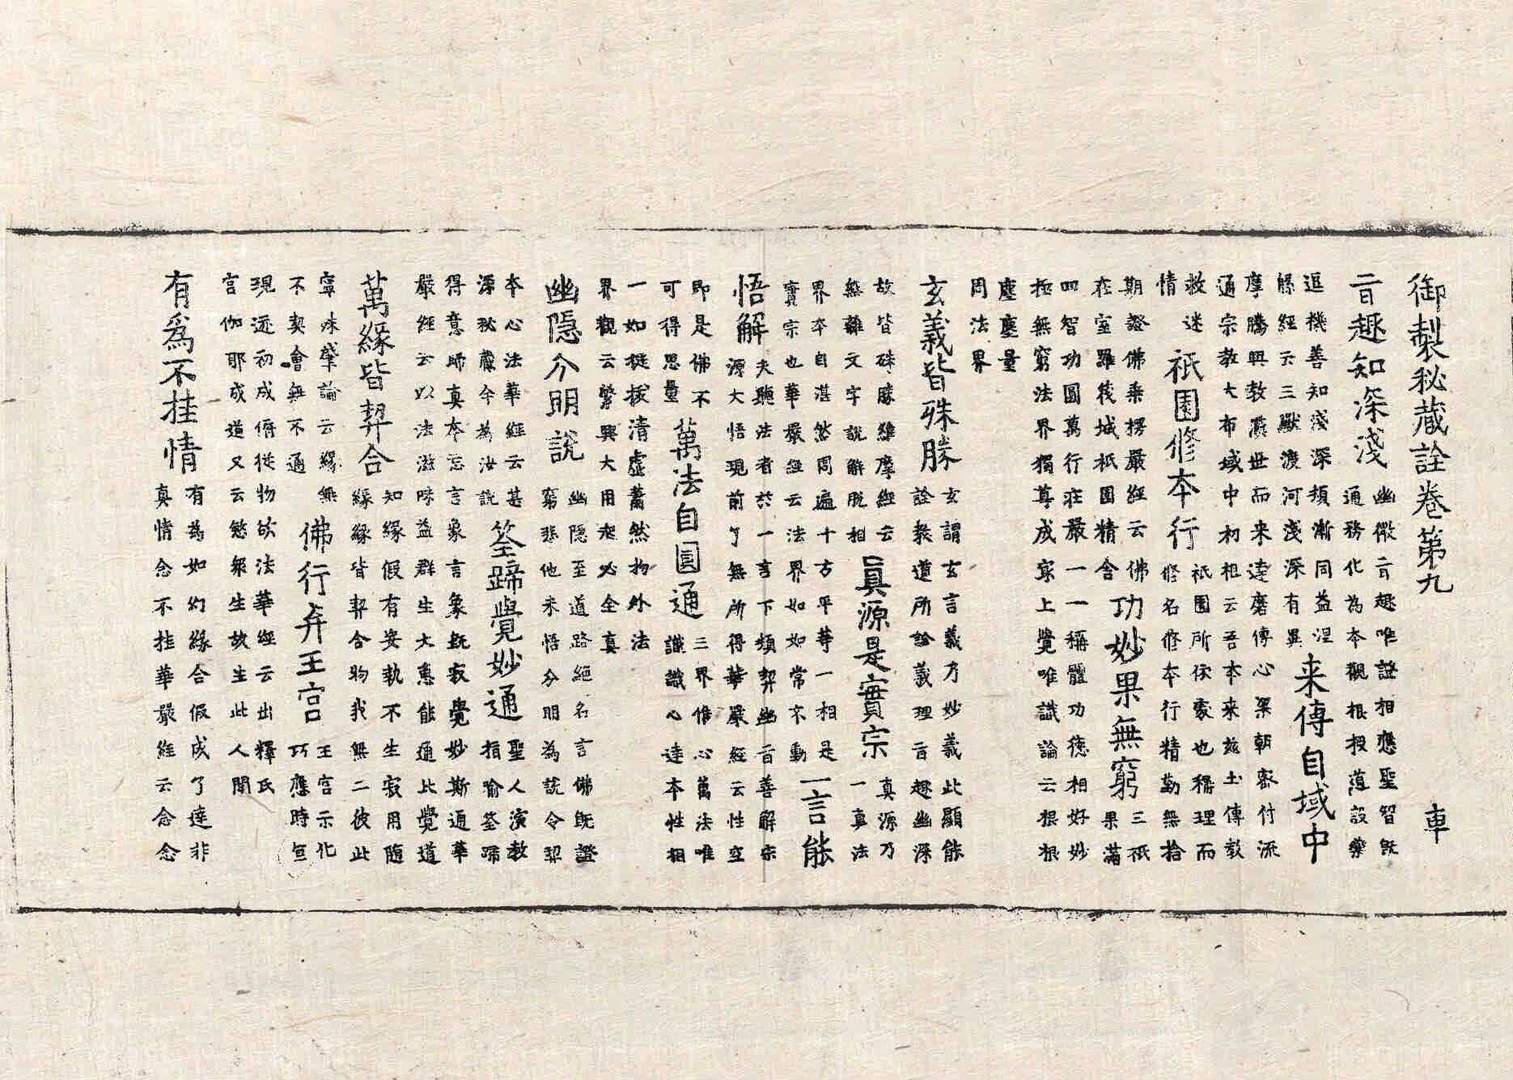 御製秘藏詮卷第九　車
㫖趣知深淺
幽微㫖趣唯證相應聖智旣
通務化為本觀根授設藥
逗機善知淺深頻漸同益涅
槃經云三獸渡河淺深有異
来傳自域中
摩騰興教漢世而来達磨傳心梁朝密付流
通宗教大布域中初祖云吾本来兹土傳教
救迷
情
祇園修本行
祇園所依處也稱理而
修名修本行精勤無捨
期證佛乗楞嚴經云佛
在室羅筏城祇園精舍
功妙果無窮
三祇
果滿
四智功圓萬行莊嚴一一稱體功德相好妙
極無窮法界獨尊成家上覺唯識論云根根
塵塵量
周法界
玄義皆殊勝
玄謂玄言義乃妙義此顯能
詮教道所詮義理㫖趣幽深
故皆殊勝維摩經云
無離文字說解脫相
眞源是實宗
真源乃
一真法
界本自湛然周遍十方平等一相是
實宗也華嚴經云法界如如常不動
一言能
悟解
夫聽法者於一言下頓契幽㫖善解宗
源大悟現前了無所得華嚴經云性空
即是佛不
可得思量
萬法自圓通
三界惟心萬法唯
識識心達本性相
一如挺拔清虛蕭然拘外法
界觀云繁興大用起必全真
幽隱分明說
幽隱至道路絕名言佛旣證
窮悲他未悟分明為說令契
本心法華經云甚
深秘藏今為汝說
筌蹄覺妙通
聖人演教
指喻筌蹄
得意歸真本忘言象言象旣寂覺妙斯通華
嚴經云以法滋味益群生大惠能通比覺道
萬緣皆契合
知緣假有妄執不生寂用隨
緣緣皆契合物我無二彼此
寧殊肇論云緣無
不契會無不通
佛行弃王宮
王宮示化
巧應時宜
現迹初成俯從物欲法華經云出釋氏
宮伽耶成道又云愍衆生故生此人間
有為不挂情
有為如幻緣合假成了達非
真情念不挂華嚴經云念念